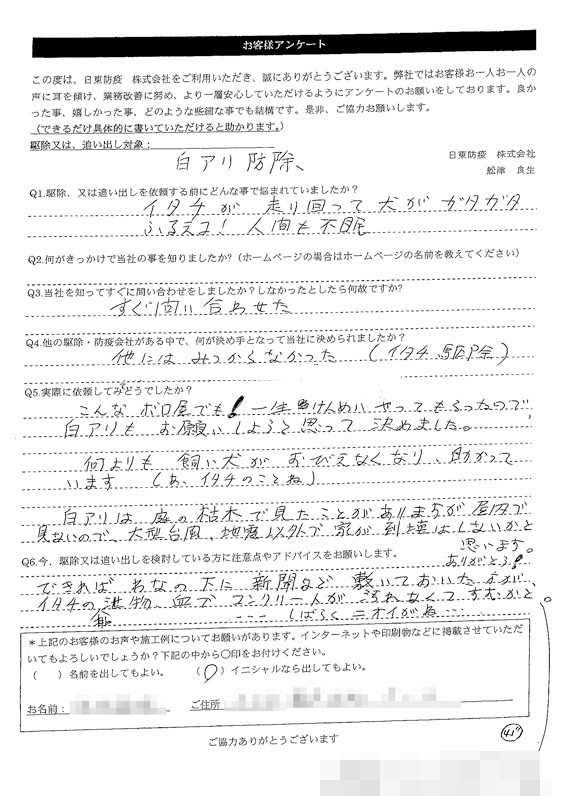 お客様アンケート
この度は、日東防疫 株式会社をご利用いただき、誠にありがとうございます。弊社ではお客様お一人お一人の
声に耳を傾け、業務改善に努め、より一層安心していただけるようにアンケートのお願いをしております。良か
った事、嬉しかった事、どのような些細な事でも結構です。是非、ご協力お願いします。
（できるだけ具体的に書いていただけると助かります。）
駆除又は、追い出し対象：
白アリ防除、
日東防疫 株式会社
舩津 良生
Q1.駆除、又は追い出しを依頼する前にどんな事で悩まれていましたか？
イタチが 走り回って 犬が ガタガタ
ふるえる! 人間も 不眠
Q2.何がきっかけで当社の事を知りましたか?（ホームページの場合はホームページの名前を教えてください）
Q3.当社を知ってすぐに問い合わせをしましたか？しなかったとしたら何故ですか?
すぐ問い合わせた
Q4.他の駆除・防疫会社がある中で、何が決め手となって当社に決められましたか？
他には みつからなかった （イタチ 駆除）
Q5.実際に依頼してみどうでしたか？
こんな ボロ屋でも! 一生けんめい やってもらったので
白アリも お願いしようと思って 決めました。
何よりも 飼い犬が おびえなくなり、助かって
います （あ、イタチのことね）
白アリは 庭の枯木で見たことがありますが 屋内で
見ないので、大型台風、地震以外で 家が 倒壊はしないかと
思います。
ありがとう!
Q6.今、駆除又は追い出しを検討している方に注意点やアドバイスをお願いします。
できれば わなの下に 新聞など 敷いておいた方が、
イタチの 血で コンクリートが 汚れなくてすむかと。
しばらく ニオイがね…
＊上記のお客様のお声や施工例についてお願いがあります。インターネットや印刷物などに掲載させていただ
いてもよろしいでしょうか？下記の中から○印をお付けください。
（ ）名前を出してもよい。 （○）イニシャルなら出してもよい。
お名前： ご住所
ご協力ありがとうございます